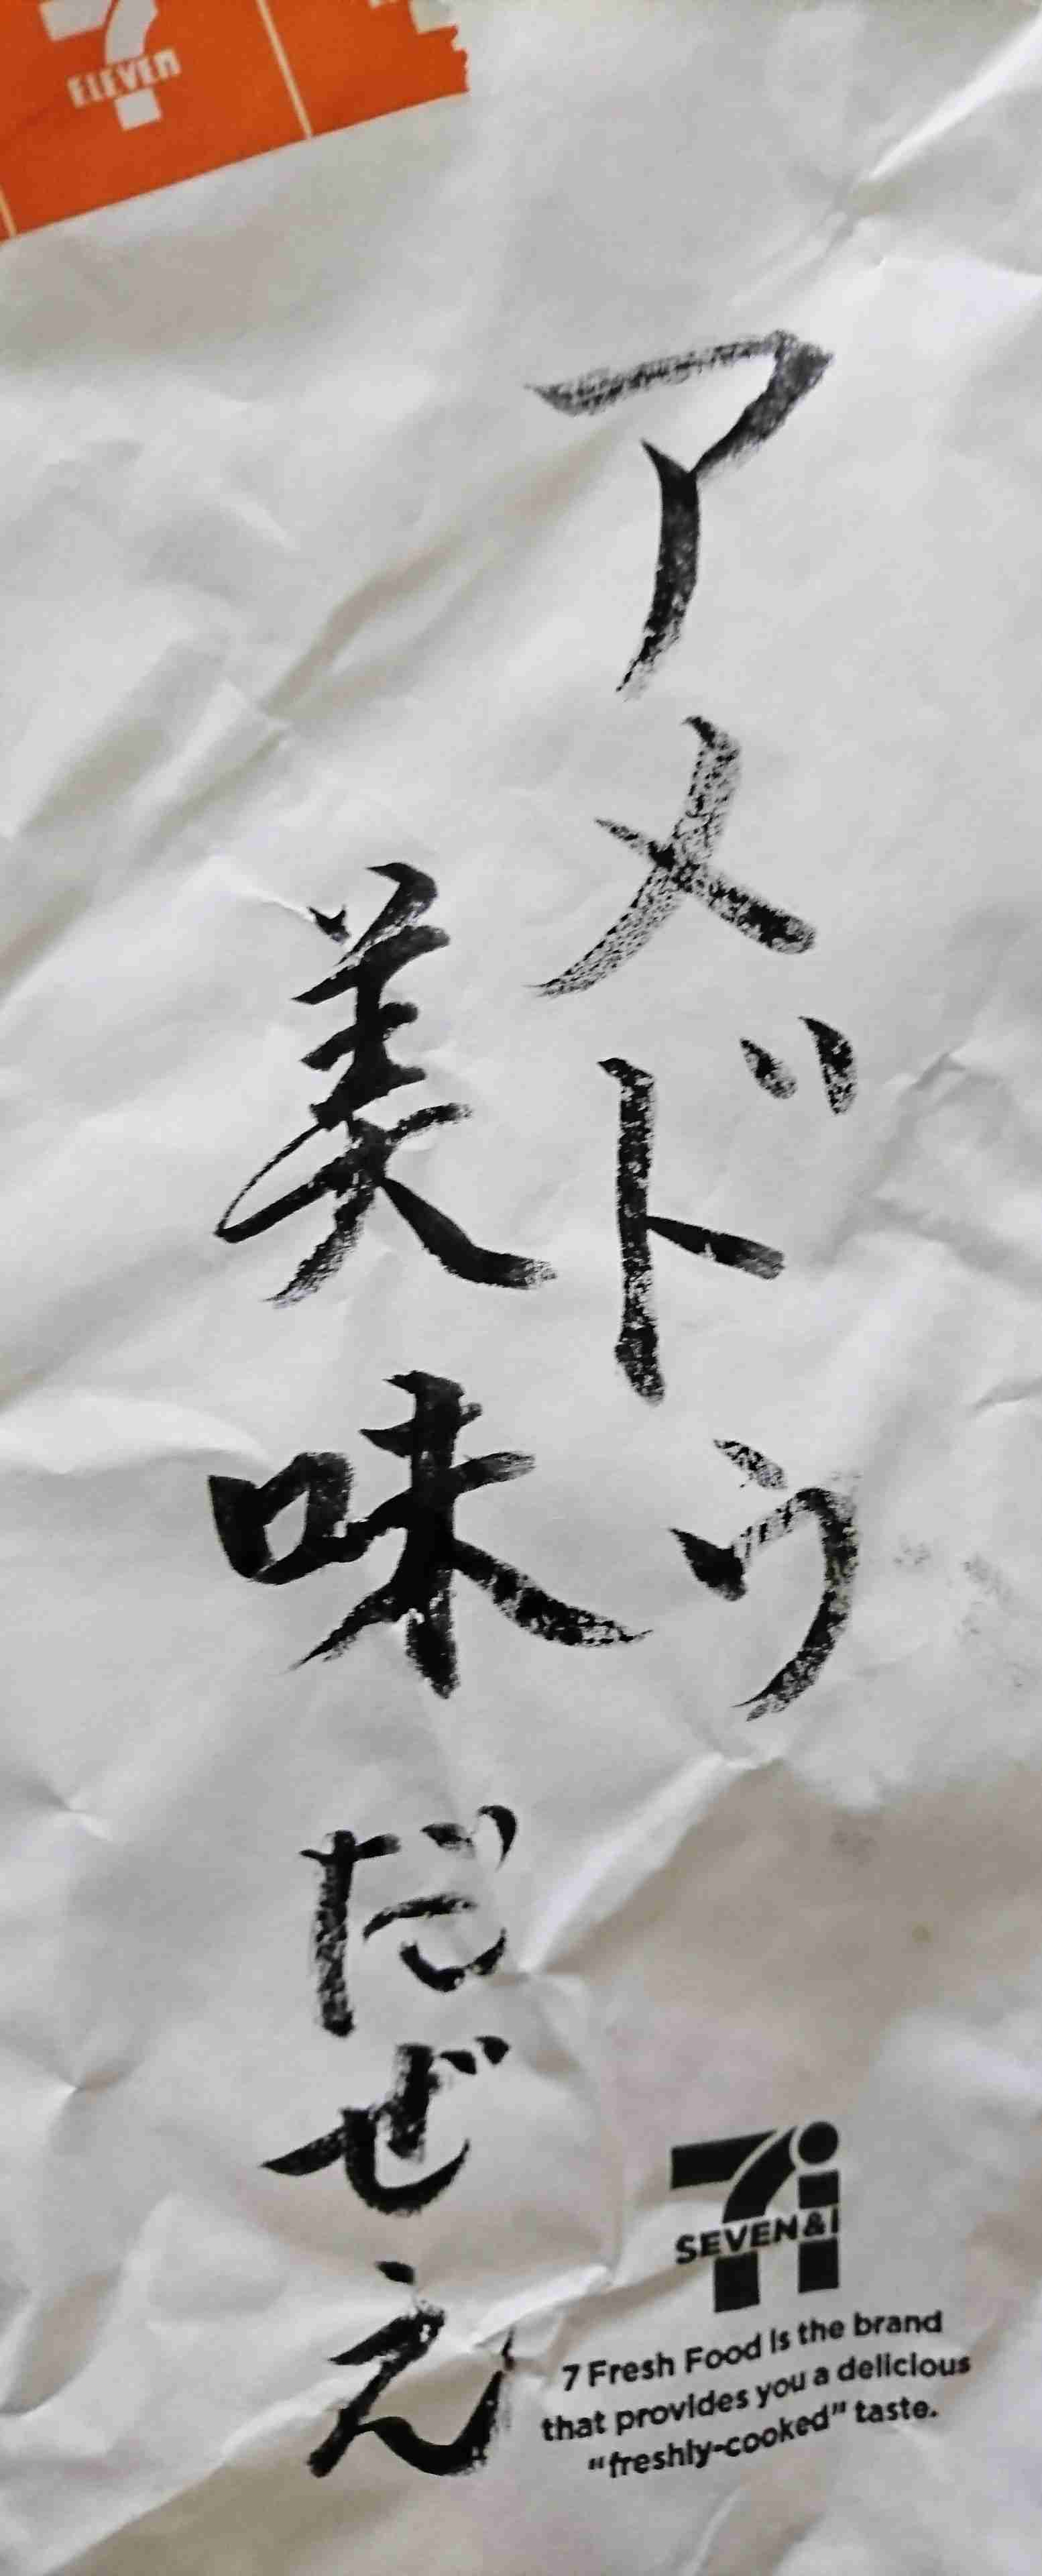 7
ELEVEn
アメドう
美味だぜえ
7i
SEVEN&i
7 Fresh Food is the brand
that provides you a delicious
"freshly-cooked" taste.